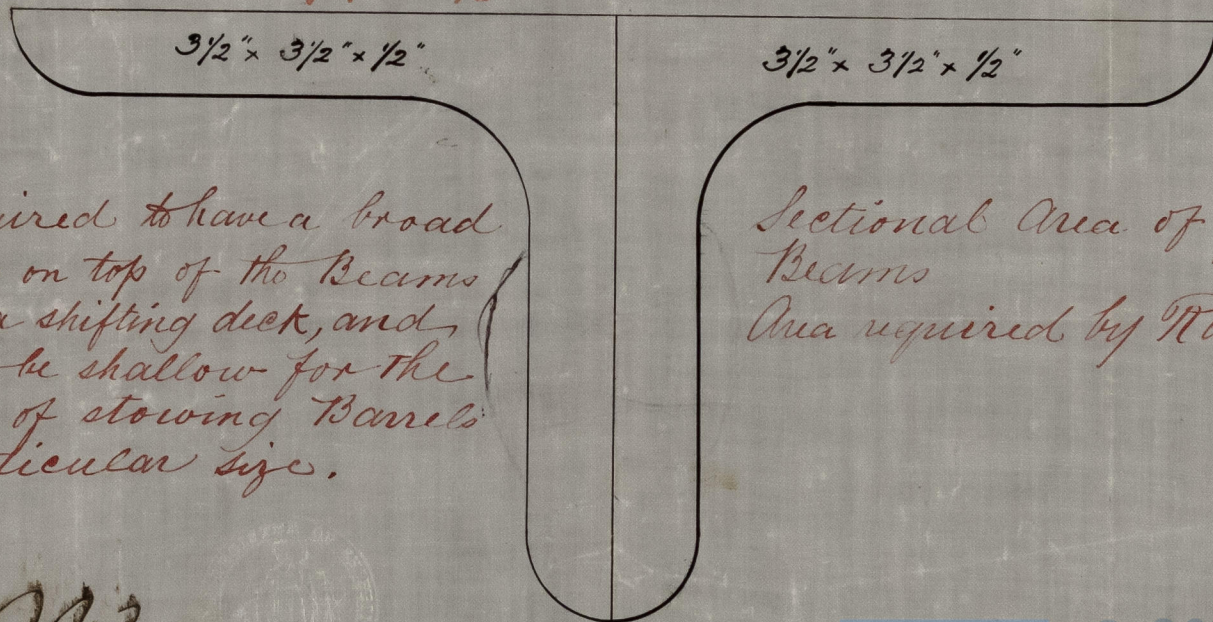 3½" x 3½" x ½"
3½" x 3½" x ½"
to have a broad
on top of the Beams
shifting deck, and
be shallow for the
of stowing Barrels
size.
Sectional Area of
Beams
Area required by